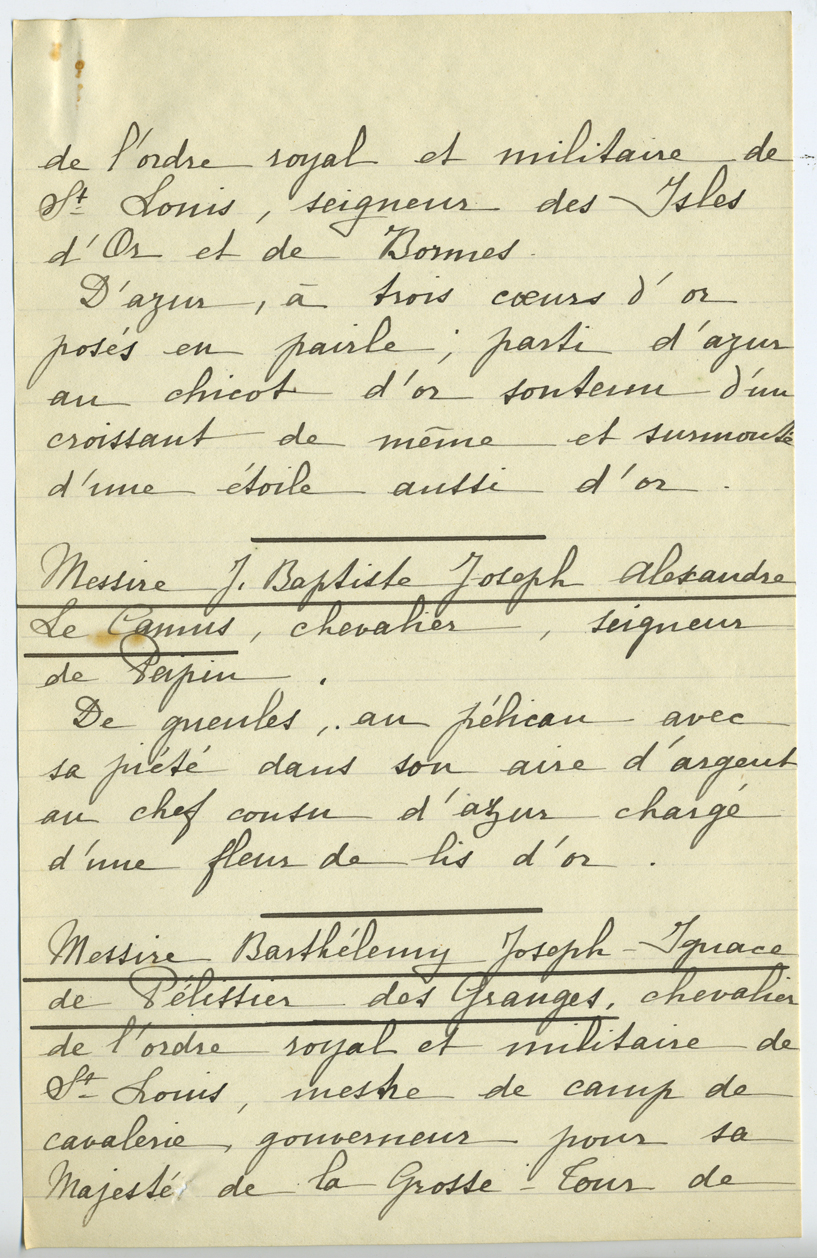 de l'ordre royal et militaire de
St Louis, seigneur des Isles
d'Or et de Bormes.
D'azur, à trois cœurs d'or
posés en pairle ; parti d'azur
au chicot d'or soutenu d'un
croissant de même et surmonté
d'une étoile aussi d'or.
Messire J. Baptiste Joseph Alexandre
Le Camus, chevalier, seigneur
de Peipin.
De gueules, au pélican avec
sa piété dans son aire d'argent
au chef cousu d'azur chargé
d'une fleur de lis d'or.
Messire Barthélemy Joseph-Ignace
de Pélissier des Granges, chevalier
de l'ordre royal et militaire de
St Louis, mestre de camp de
cavalerie, gouverneur pour sa
Majesté de la Grosse-Tour de